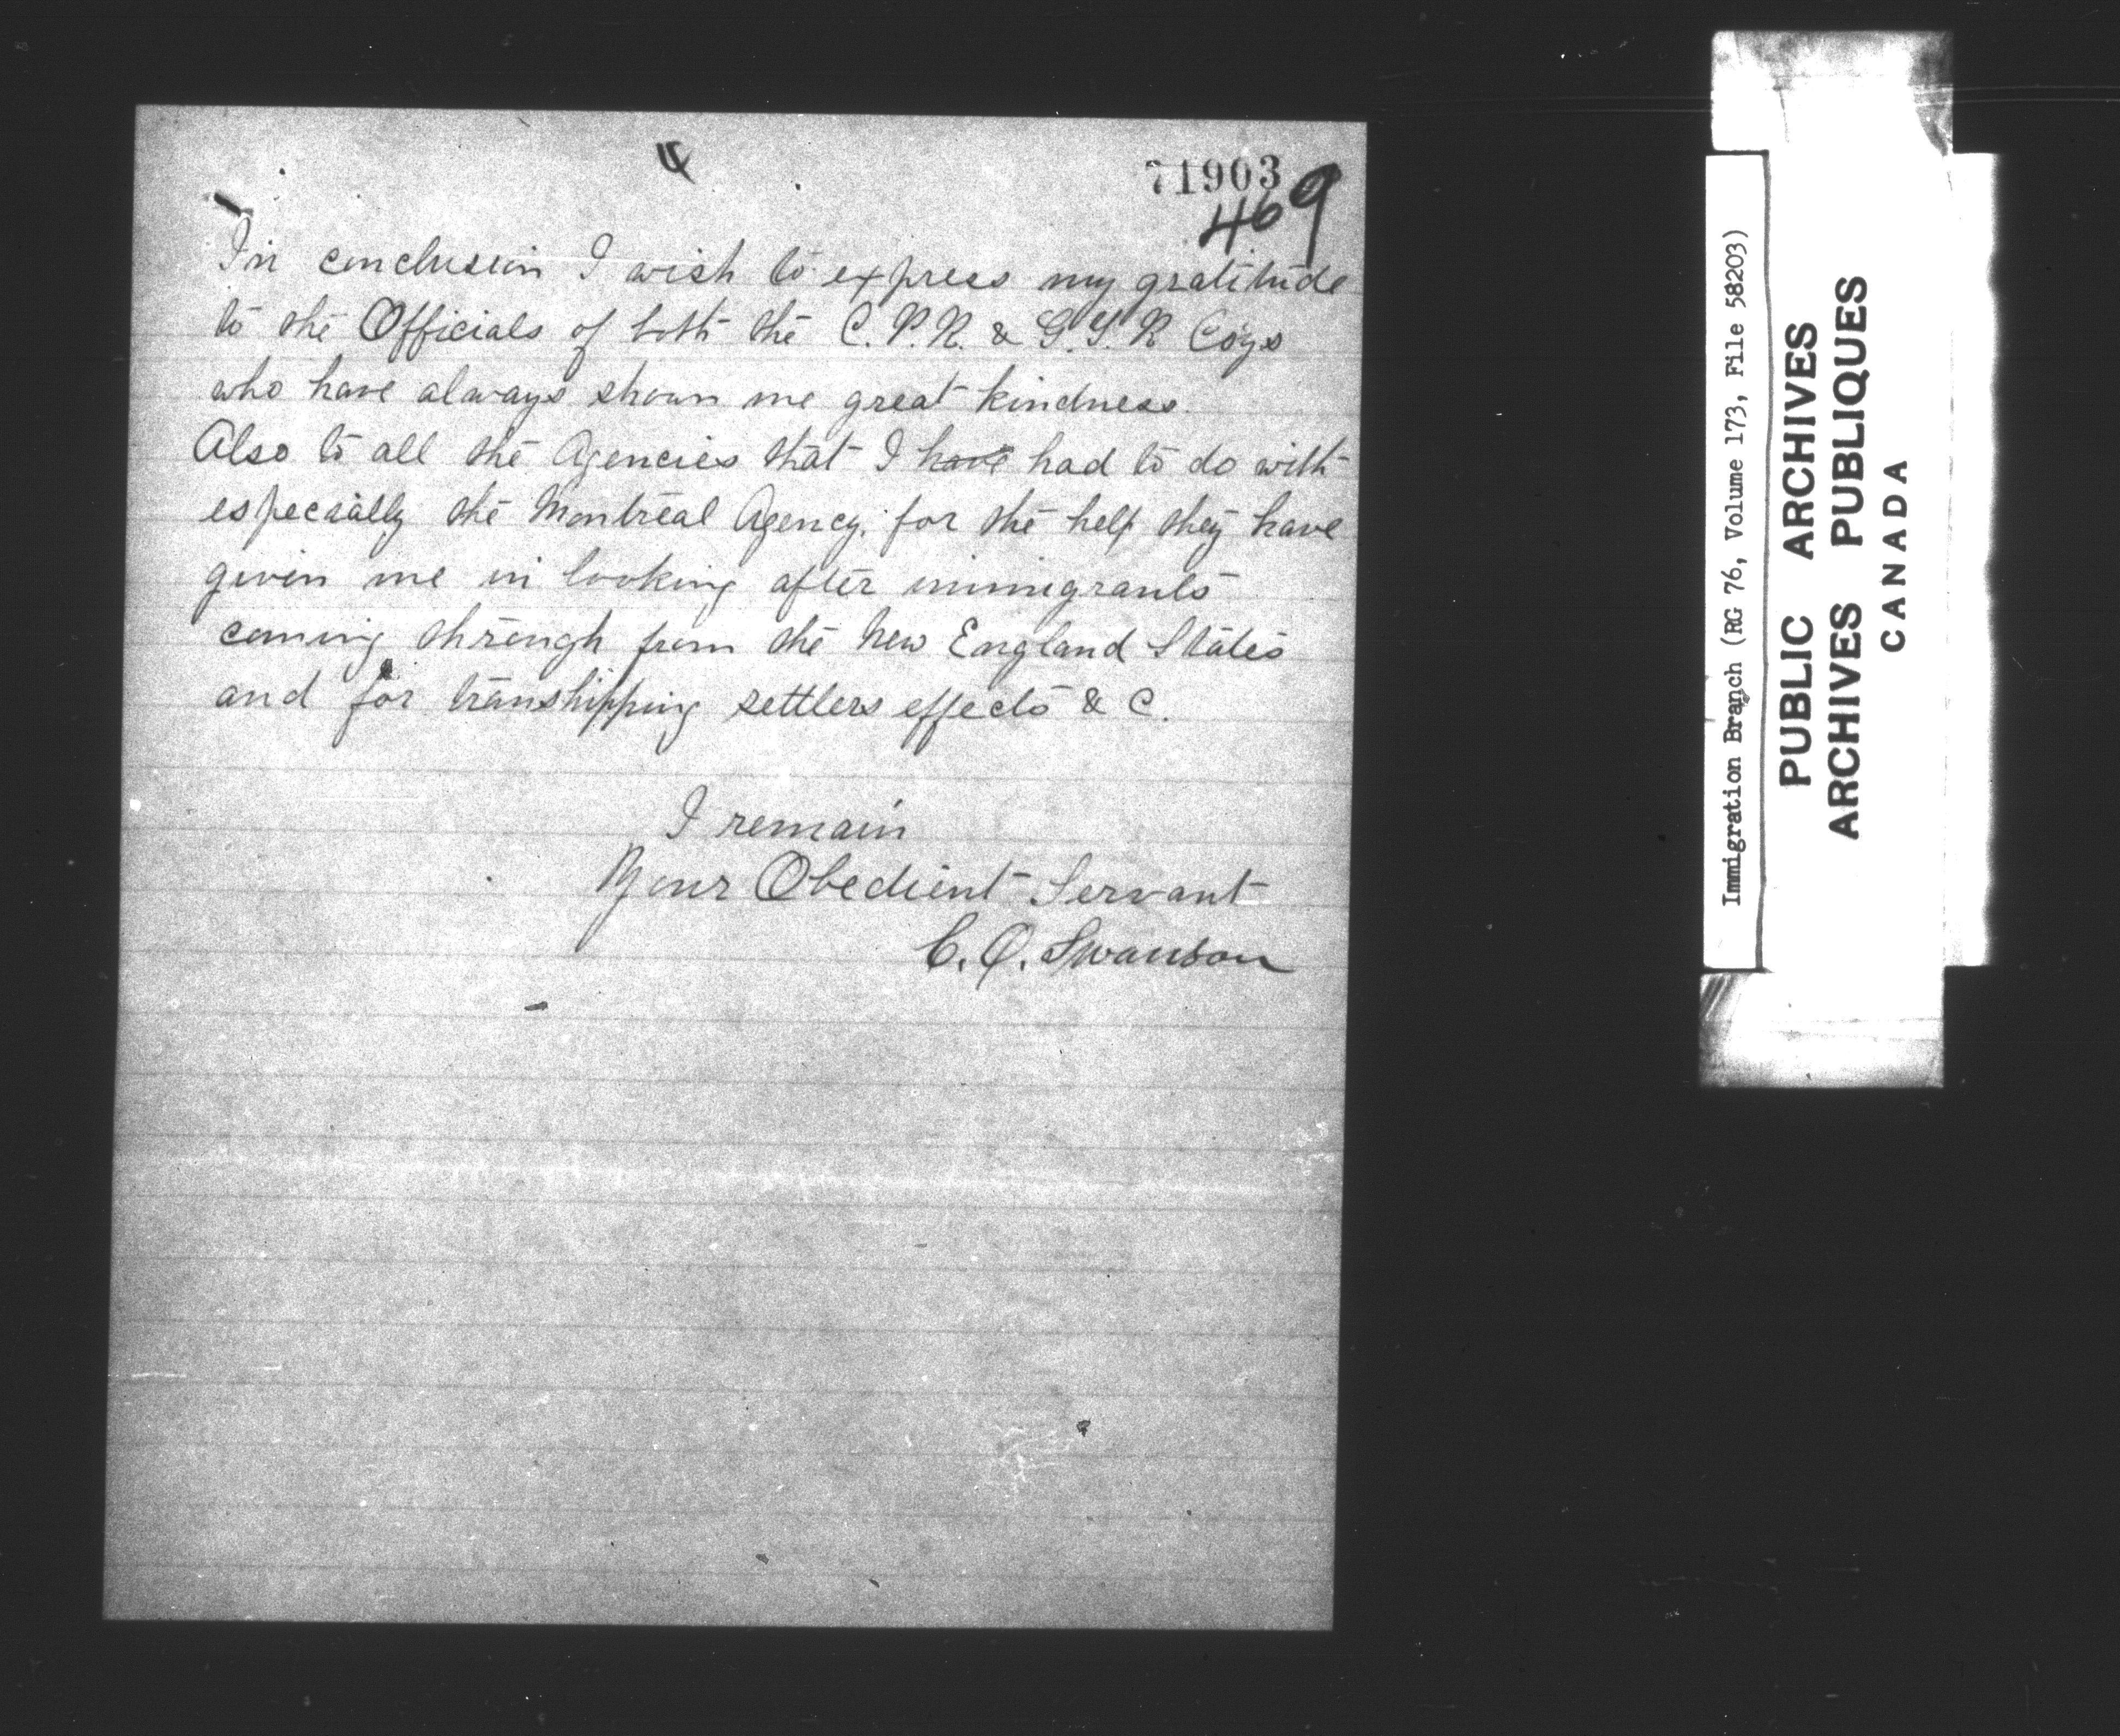 4
71903
469
In conclusion I wish to express my gratitude
to the Officials of both the C.P.R. & G.T.R Coys
who have always shown me great kindness.
Also to all the Agencies that I have had to do with
especially the Montreal Agency, for the help they have
given me in looking after immigrants
coming through from the New England States
and for transhipping settlers effects & C.
I remain
Your Obedient Servant
C.O. Swanson
Immigration Branch (RG 76, Volume 173, File 58203)
PUBLIC ARCHIVES
ARCHIVES PUBLIQUES
CANADA